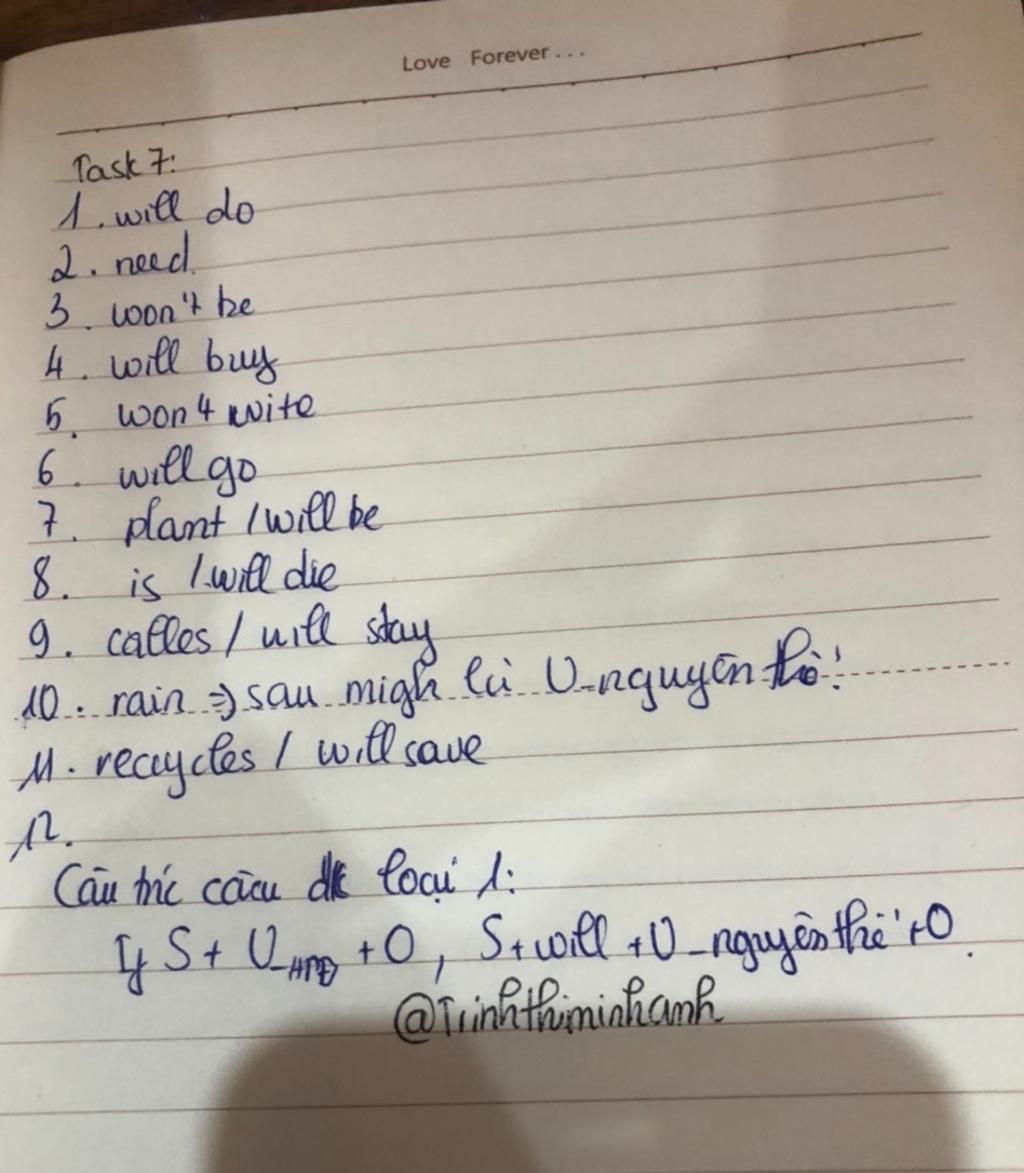 Love Forever...
Task 7:
1. will do
2. need.
3. won't be
4. will buy
5. won't write
6. will go
7. plant / will be
8. is / will die
9. calles / will stay
10. rain => sau migh là V_nguyên thể!
11. recycles / will save
12.
Cấu trúc câu đk loại 1:
If S + V_HTĐ + O, S + will + V_nguyên thể + O.
@Trinhthiminhanh